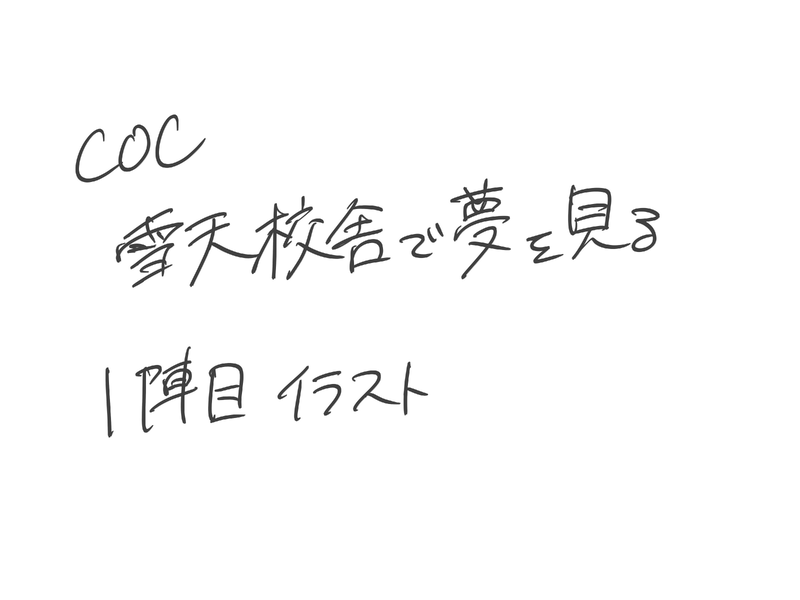 COC
雪天校舎で夢を見る
1陣目 イラスト